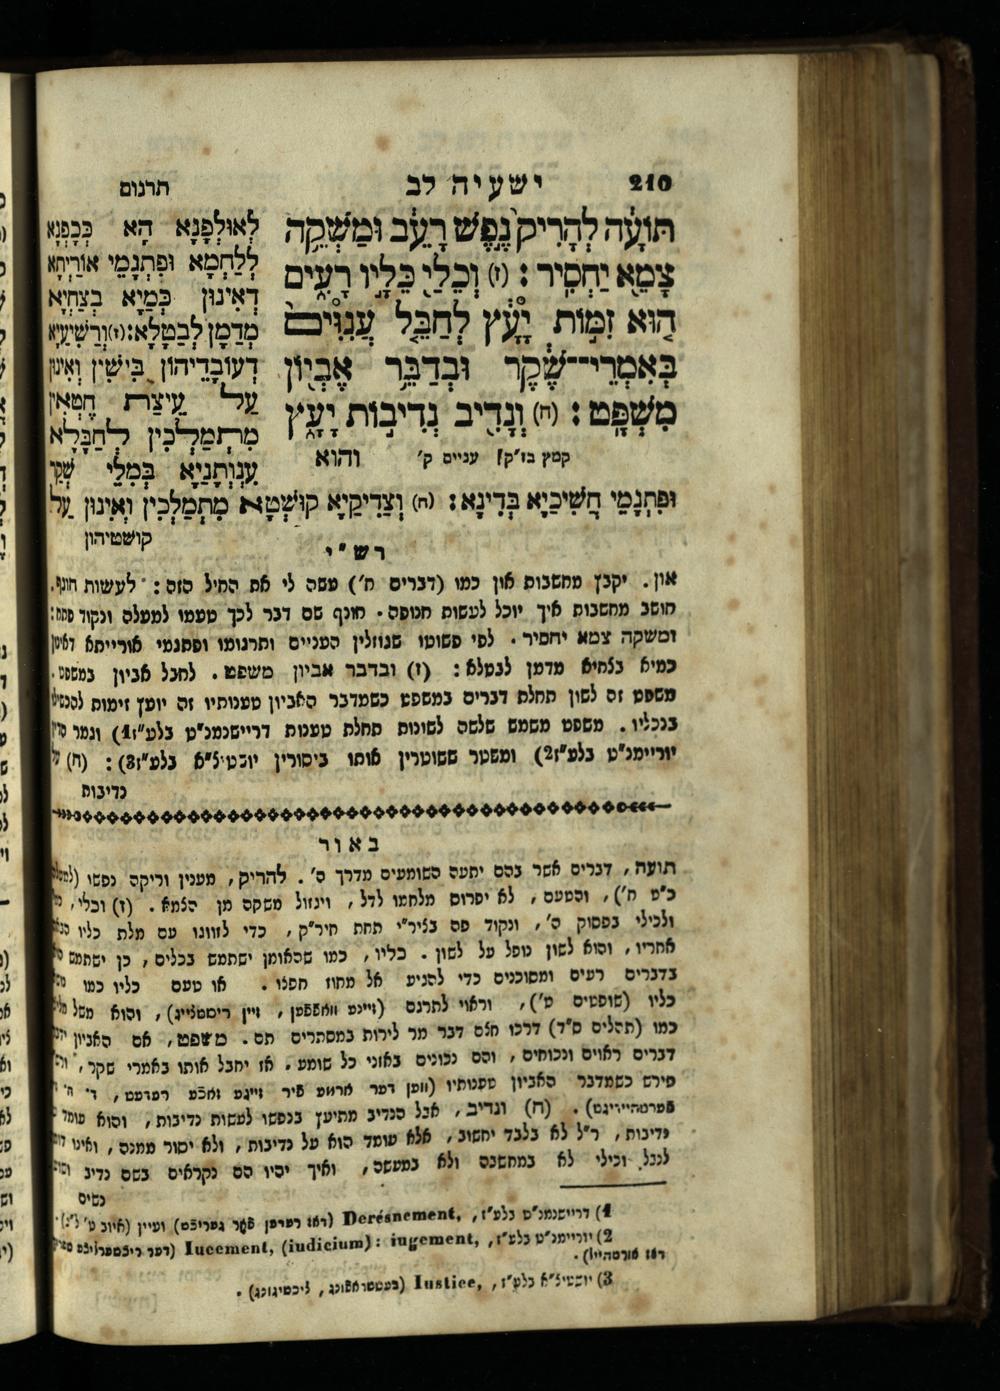 210
ישעיה לב
תרגום
תּוֹעָה לְהָרִיק נֶפֶשׁ רָעֵב וּמַשְׁקֵה
צָמֵא יַחְסִיר׃ (ז) וְכֵלַי כֵּלָיו רָעִים
הוּא זִמּוֹת יָעָץ לְחַבֵּל עֲנָוִים
בְּאִמְרֵי־שֶׁקֶר וּבְדַבֵּר אֶבְיוֹן
מִשְׁפָּט׃ (ח) וְנָדִיב נְדִיבוֹת יָעָץ
קמץ בז״ק עניים ק׳
והוא
לְאוּלְפָנָא הָא כְּכַפְנָא
לְלַחְמָא וּפִתְגָמֵי אוֹרַיְתָא
דְאִינוּן כְּמַיָא בְצַחְיָא
מְדַמָן לְבַטָלָא׃ (ז) וְרַשִׁיעַיָא
דְעוֹבָדֵיהוֹן בִּישִׁין וְאִינוּן
עַל עֵיצַת חֶטְאִין
מִתְמַלְכִין לְחַבָּלָא
עִנְוְתָנַיָא בְּמִלֵי שְׁקַר
וּפִתְגָמֵי חֲשִׁיכַיָא בְּדִינָא׃ (ח) וְצַדִיקַיָא קוּשְׁטָא מִתְמַלְכִין וְאִינוּן עַל
קושטיהון
רש״י
און. יקבץ מחשבות און כמו (דברים ח׳) עשה לי את החיל הזה: לעשות חונף.
חושב מחשבות איך יוכל לעשות חנופה. חונף שם דבר לכך טעמו למעלה ונקוד פתח:
ומשקה צמא יחסיר. לפי פשוטו שגוזלין העניים ותרגומו ופתגמי אורייתא דאינון
כמיא בצחיא מדמן לבטלא: (ז) ובדבר אביון משפט. לחבל אביון במשפט.
משפט זה לשון תחלת דברים במשפט כשמדבר האביון טענותיו זה יועץ זימות להכשילו
בנכליו. משפט משמש שלשה לשונות תחלת טענות דריישנמנ״ט בלע״ז1) וגמר הדין
יוגיימנ״ט בלע״ז2) ומשטר ששוטרין אותו ביסורין יושטיצ״א בלע״ז3): (ח) על
נדיבות
באור
תועה, דברים אשר בהם יתעה השומעים מדרך ה׳. להריק, מענין וריקה נפשו (למעלה
כ״ט ח׳), והטעם, לא יפרוס מלחמו לדל, ויגזול משקה מן הצמא. (ז) וכלי,
ולכילי בפסוק ה׳, ונקוד פה בציר״י תחת חיר״ק, כדי לזווגו עם מלת כליו הבאה
אחריו, והוא לשון נופל על לשון. כליו, כמו שהאומן ישתמש בכלים, כן ישתמש הוא
בדברים רעים ומסוכנים כדי להגיע אל מחוז חפצו. או טעם כליו כמו
כליו (שופטים ט׳), וראוי לתרגם (זיינע וואפפען, זיין ריסטצייג), והוא משל
כמו (תהלים ס״ד) דרכו חצם דבר מר לירות במסתרים תם. משפט, אם האביון
דברים ראוים ונכוחים, והם נכונים באזני כל שומע. אז יחבל אותו באמרי שקר,
פירש כשמדבר האביון טענותיו (ווען דער ארמע פיר זיינע זאכע רעדעט,
פערטהיידיגט). (ח) ונדיב, אבל הנדיב מתיעץ בנפשו לעשות נדיבות, והוא עומד
נדיבות, ר״ל לא בלבד יחשוב, אלא עומד הוא על נדיבות, ולא יסור ממנה, ואינו
לנבל וכילי לא במחשבה ולא במעשה, ואיך יהיו הם נקראים בשם נדיב
נשים
1) דריישנמנ״ט בלע״ז, Derésnement, (דאז רעדען פאר געריכט) ועיין (איוב ט׳ ל״ג).
2) יוגיימנ״ט בלע״ז, Iucement, (iudicium): iugement, (דער ריכטערליכע
דאז אורטהייל).
3) יושטיצ״א בלע״ז, Iustice, (בעשטראפונג, ליכטיגונג).